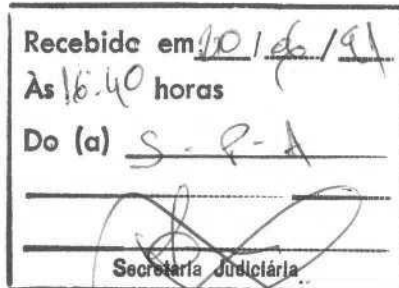 Recebido em 20 / 06 / 91
Às 16.40 horas
Do (a) S - P - A
Secretaria Judiciária